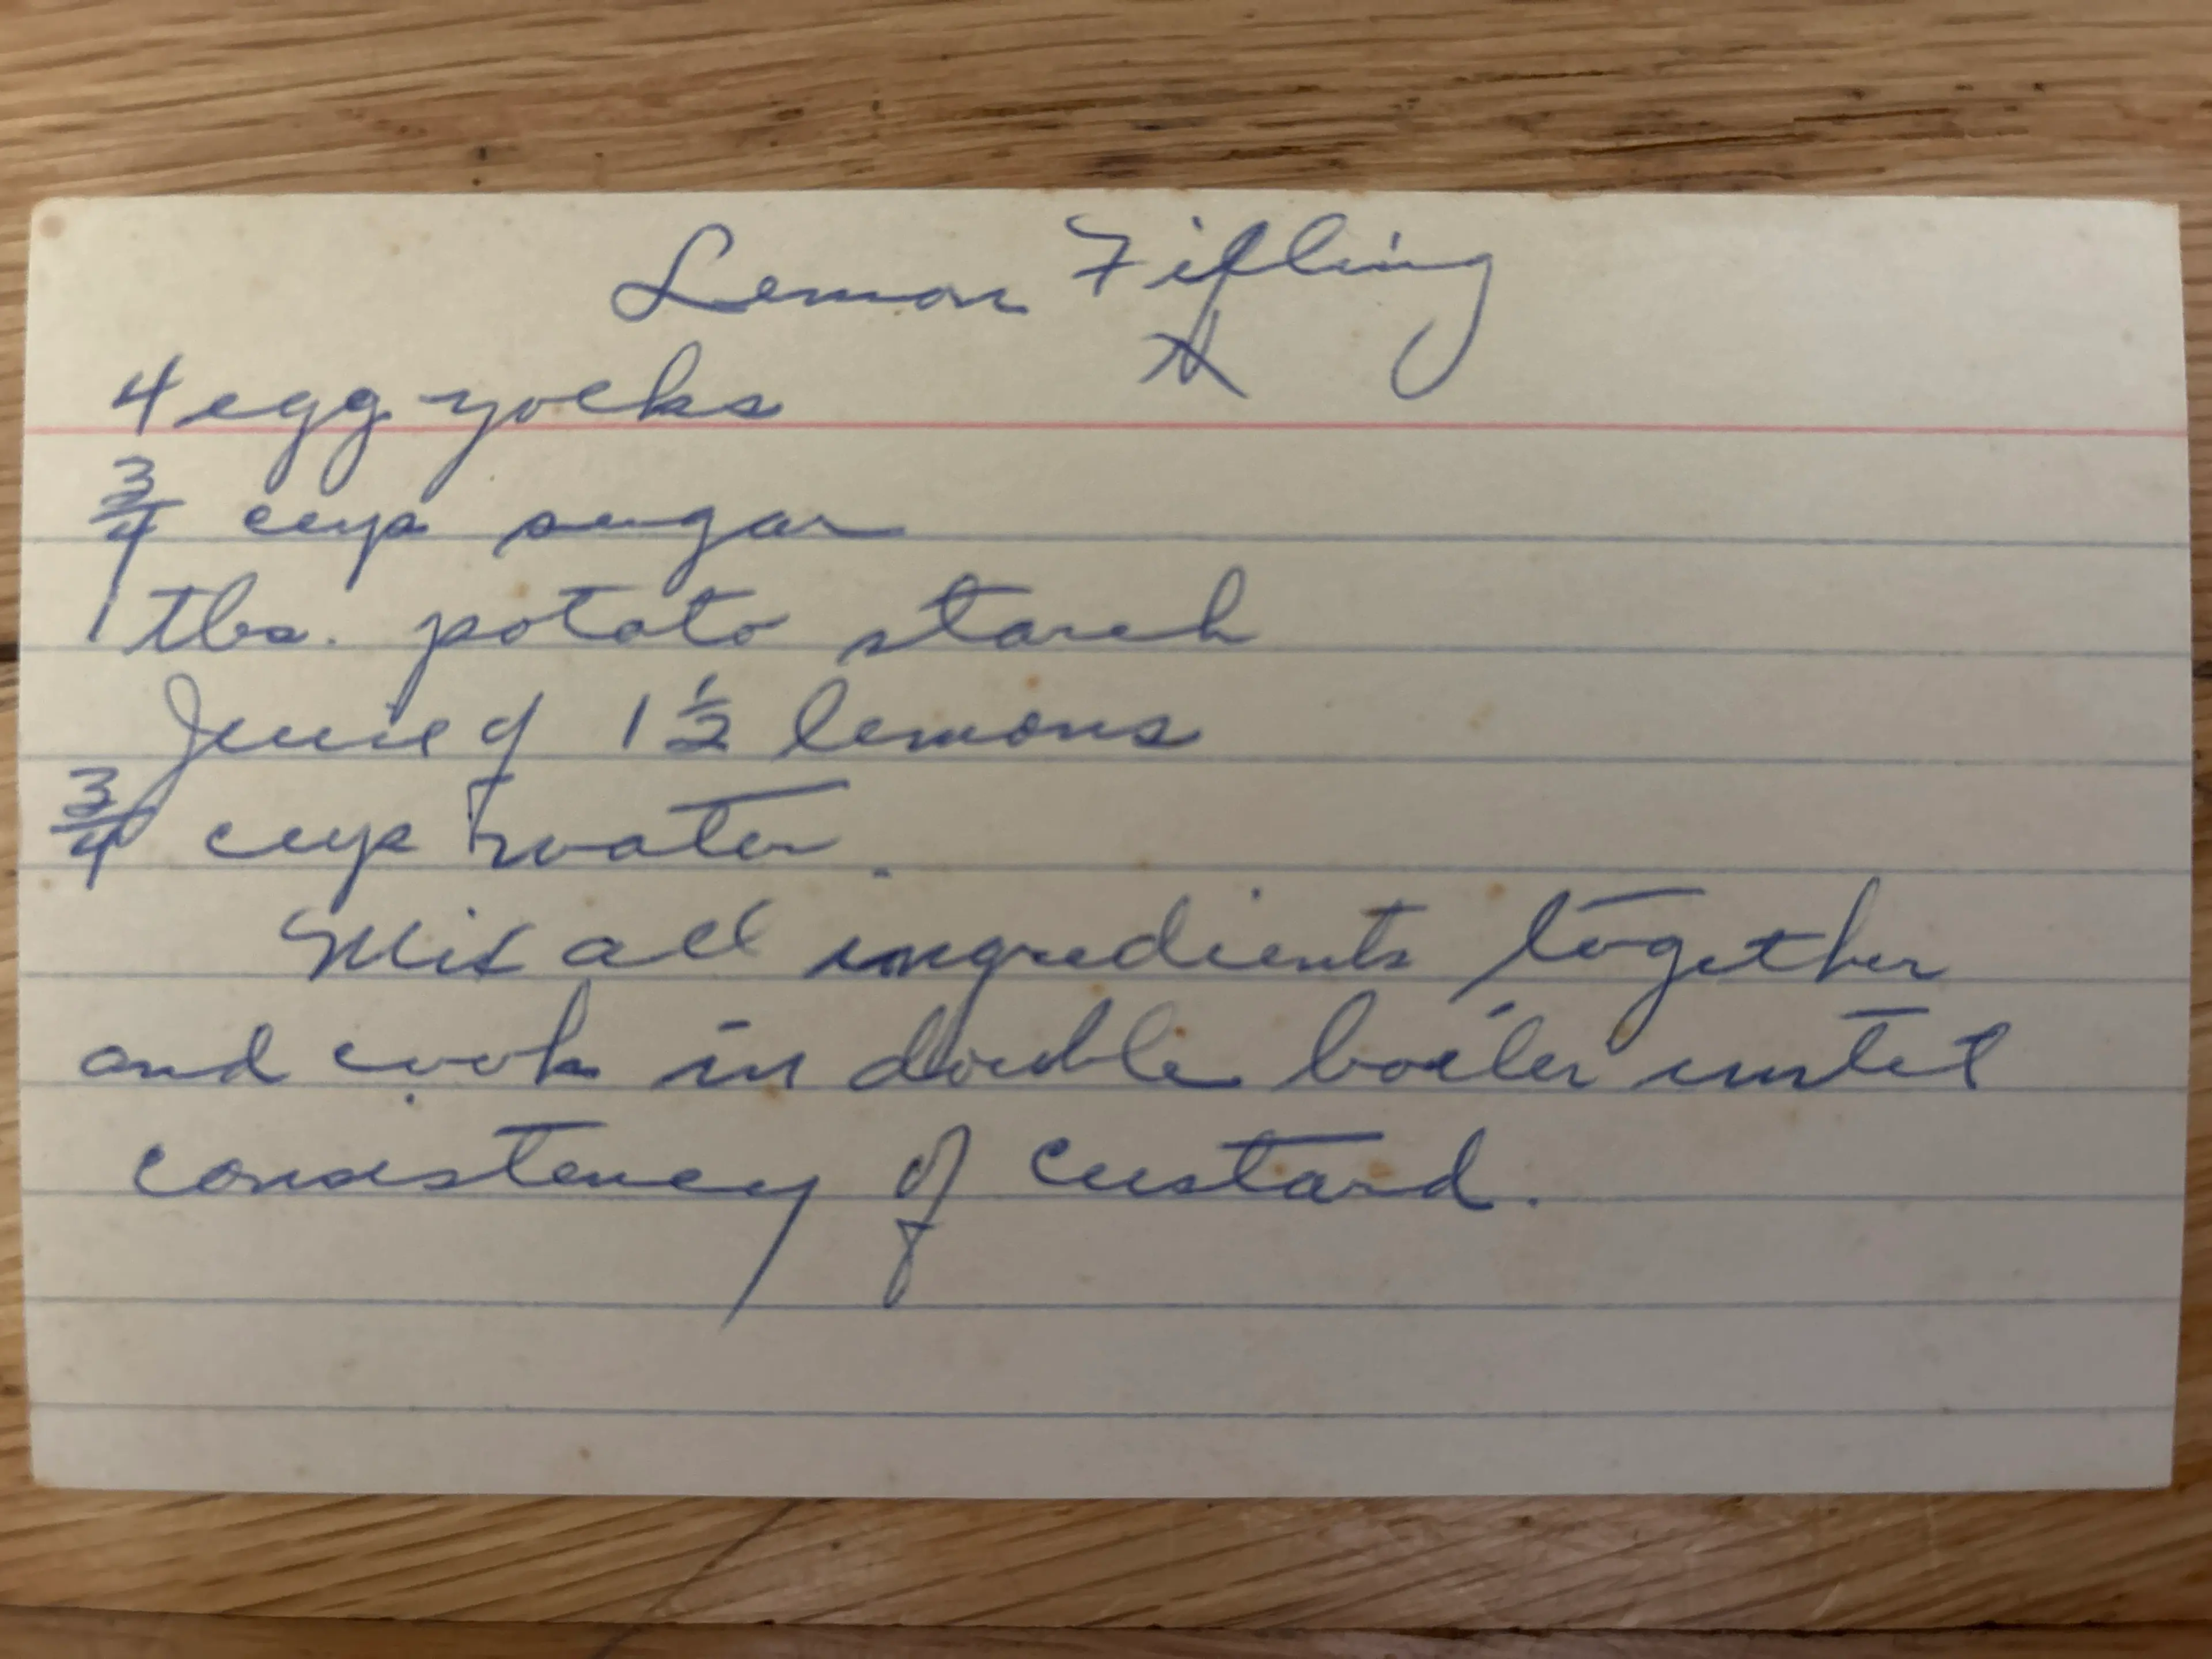 Lemon Filling
4 egg yolks
3/4 cup sugar
1 tbs. potato starch
Juice of 1 1/2 lemons
3/4 cup water.
Mix all ingredients together
and cook in double boiler until
consistency of custard.